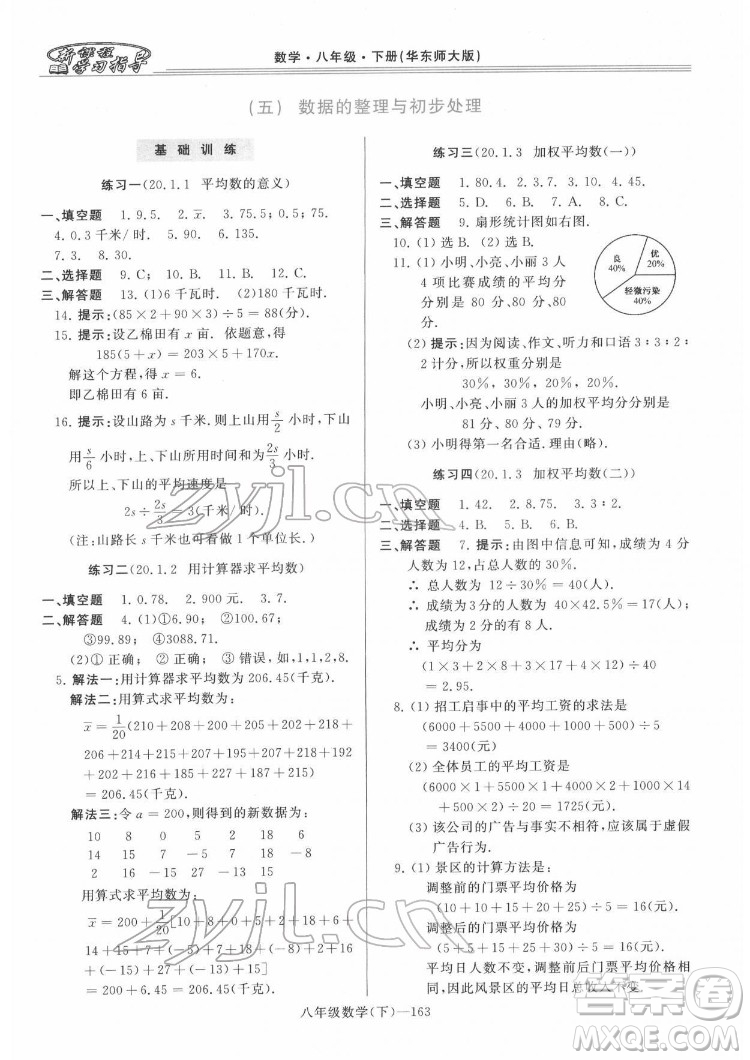 新课程
学习指导
数学·八年级·下册(华东师大版)
(五) 数据的整理与初步处理
基础训练
练习一(20.1.1 平均数的意义)
一、填空题 1.9.5. 2.x̄. 3.75.5;0.5;75.
4.0.3千米/时. 5.90. 6.135.
7.3. 8.3.
二、选择题 9.C; 10.B. 11.B. 12.B.
三、解答题 13.(1)6千瓦时.(2)180千瓦时.
14.提示:(85×2+90×3)÷5=88(分).
15.提示:设乙棉田有x亩.依题意,得
185(5+x)=203×5+170x.
解这个方程,得x=6.
即乙棉田有6亩.
16.提示:设山路为s千米.则上山用s/2小时,下山
用s/6小时,上、下山所用时间和为2s/3小时.
所以上、下山的平均速度是
2s÷2s/3=3(千米/时).
(注:山路长s千米也可看作1个单位长.)
练习二(20.1.2 用计算器求平均数)
一、填空题 1.0.78. 2.900元. 3.7.
二、解答题 4.(1)①6.90; ②149.17;
③99.89; ④3088.71.
(2)①正确; ②正确; ③错误,如-1,-2,-3.
5.解法一:用计算器求平均数为206.45(千克).
解法二:用算式求平均数为:
x̄=1/20(210+208+200+205+202+218+
206+214+215+207+195+207+218+
192+202+216+185+227+187+215)
=206.45(千克).
解法三:令a=200,则得到的新数据为:
10 8 0 5 2 18 6
14 15 7 -5 7 18 -8
2 16 -15 27 -13 15
用算式求平均数为:
x̄=200+1/20[10+8+0+5+2+18+6+
14+15+7+(-5)+7+18+(-8)+2+16
+(-15)+27+(-13)+15]
=200+6.45=206.45(千克).
练习三(20.1.3 加权平均数(一))
一、填空题 1.80.4. 2.2. 3.10. 4.45.
二、选择题 5.D. 6.B. 7.C. 8.A.
三、解答题 9.扇形统计图如右图.
10.(1)选B.(2)选B.
11.(1)小明、小亮、小丽3人
4项比赛成绩的平均分
分别是80分、80分、
80分.
良
40%
优
20%
轻微污染
40%
(2)提示:因为阅读、作文、听力和口语3∶3∶2∶
2计分,所以权重分别是
30%,30%,20%,20%
小明、小亮、小丽3人的加权平均分分别是
81分、80分、79分.
(3)小明得第一名合适.理由(略).
练习四(20.1.3 加权平均数(二))
一、填空题 1.42. 2.8.75. 3.3∶2.
二、选择题 4.B. 5.B. 6.D.
三、解答题 7.提示:由图中信息可知,成绩为4分
人数为12,占总人数的30%.
∴ 总人数为 12÷30%=40(人).
∴ 成绩为3分的人数为 40×42.5%=17(人).
∴ 平均分为
(1×3+2×8+3×17+4×12)÷40
=2.95.
8.(1)招工启事中的平均工资的求法是
(6000+5500+4000+1000+500)÷5
=3400(元)
(2)全体员工的平均工资是
(6000×1+5500×1+4000×2+1000×
12+500×4)÷20=1725(元).
(3)该公司的广告与事实不符,应该属于虚假
广告行为.
9.(1)景区的计算方法是:
调整前的门票平均价格为
(10+10+15+20+25)÷5=16(元).
调整后的门票平均价格为
(5+5+15+25+30)÷5=16(元).
平均日人数又没变,
因此风景区的平均日总收入不变.
zyjl.cn
zyjl.cn
答案卷
八年级数学(下)—163